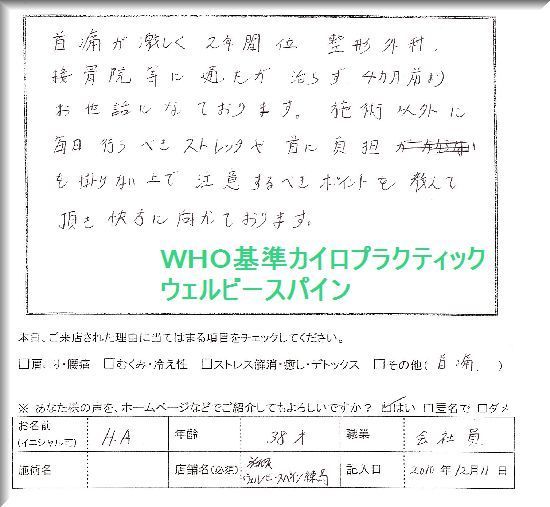 首痛が激しく 2年間位 整形外科、
接骨院等に通たが治らず 4カ月前より
お世話になております。施術以外に
毎日行うべきストレッチや首に負担
を掛けない上で注意するべきポイントを教えて
頂き快方に向かております。
WHO基準カイロプラクティック
ウェルビースパイン
本日、ご来店された理由に当てはまる項目をチェックしてください。
□肩こり・腰痛 □むくみ・冷え性 □ストレス解消・癒し・デトックス □その他( 首痛 )
※ あなた様の声を、ホームページなどでご紹介してもよろしいですか? ☑はい □匿名で □ダメ
お名前(イニシャル可) H.A 年齢 38才 職業 会社員
施術名 店舗名(必須) ウェルビースパイン練馬 記入日 2010年12月11日